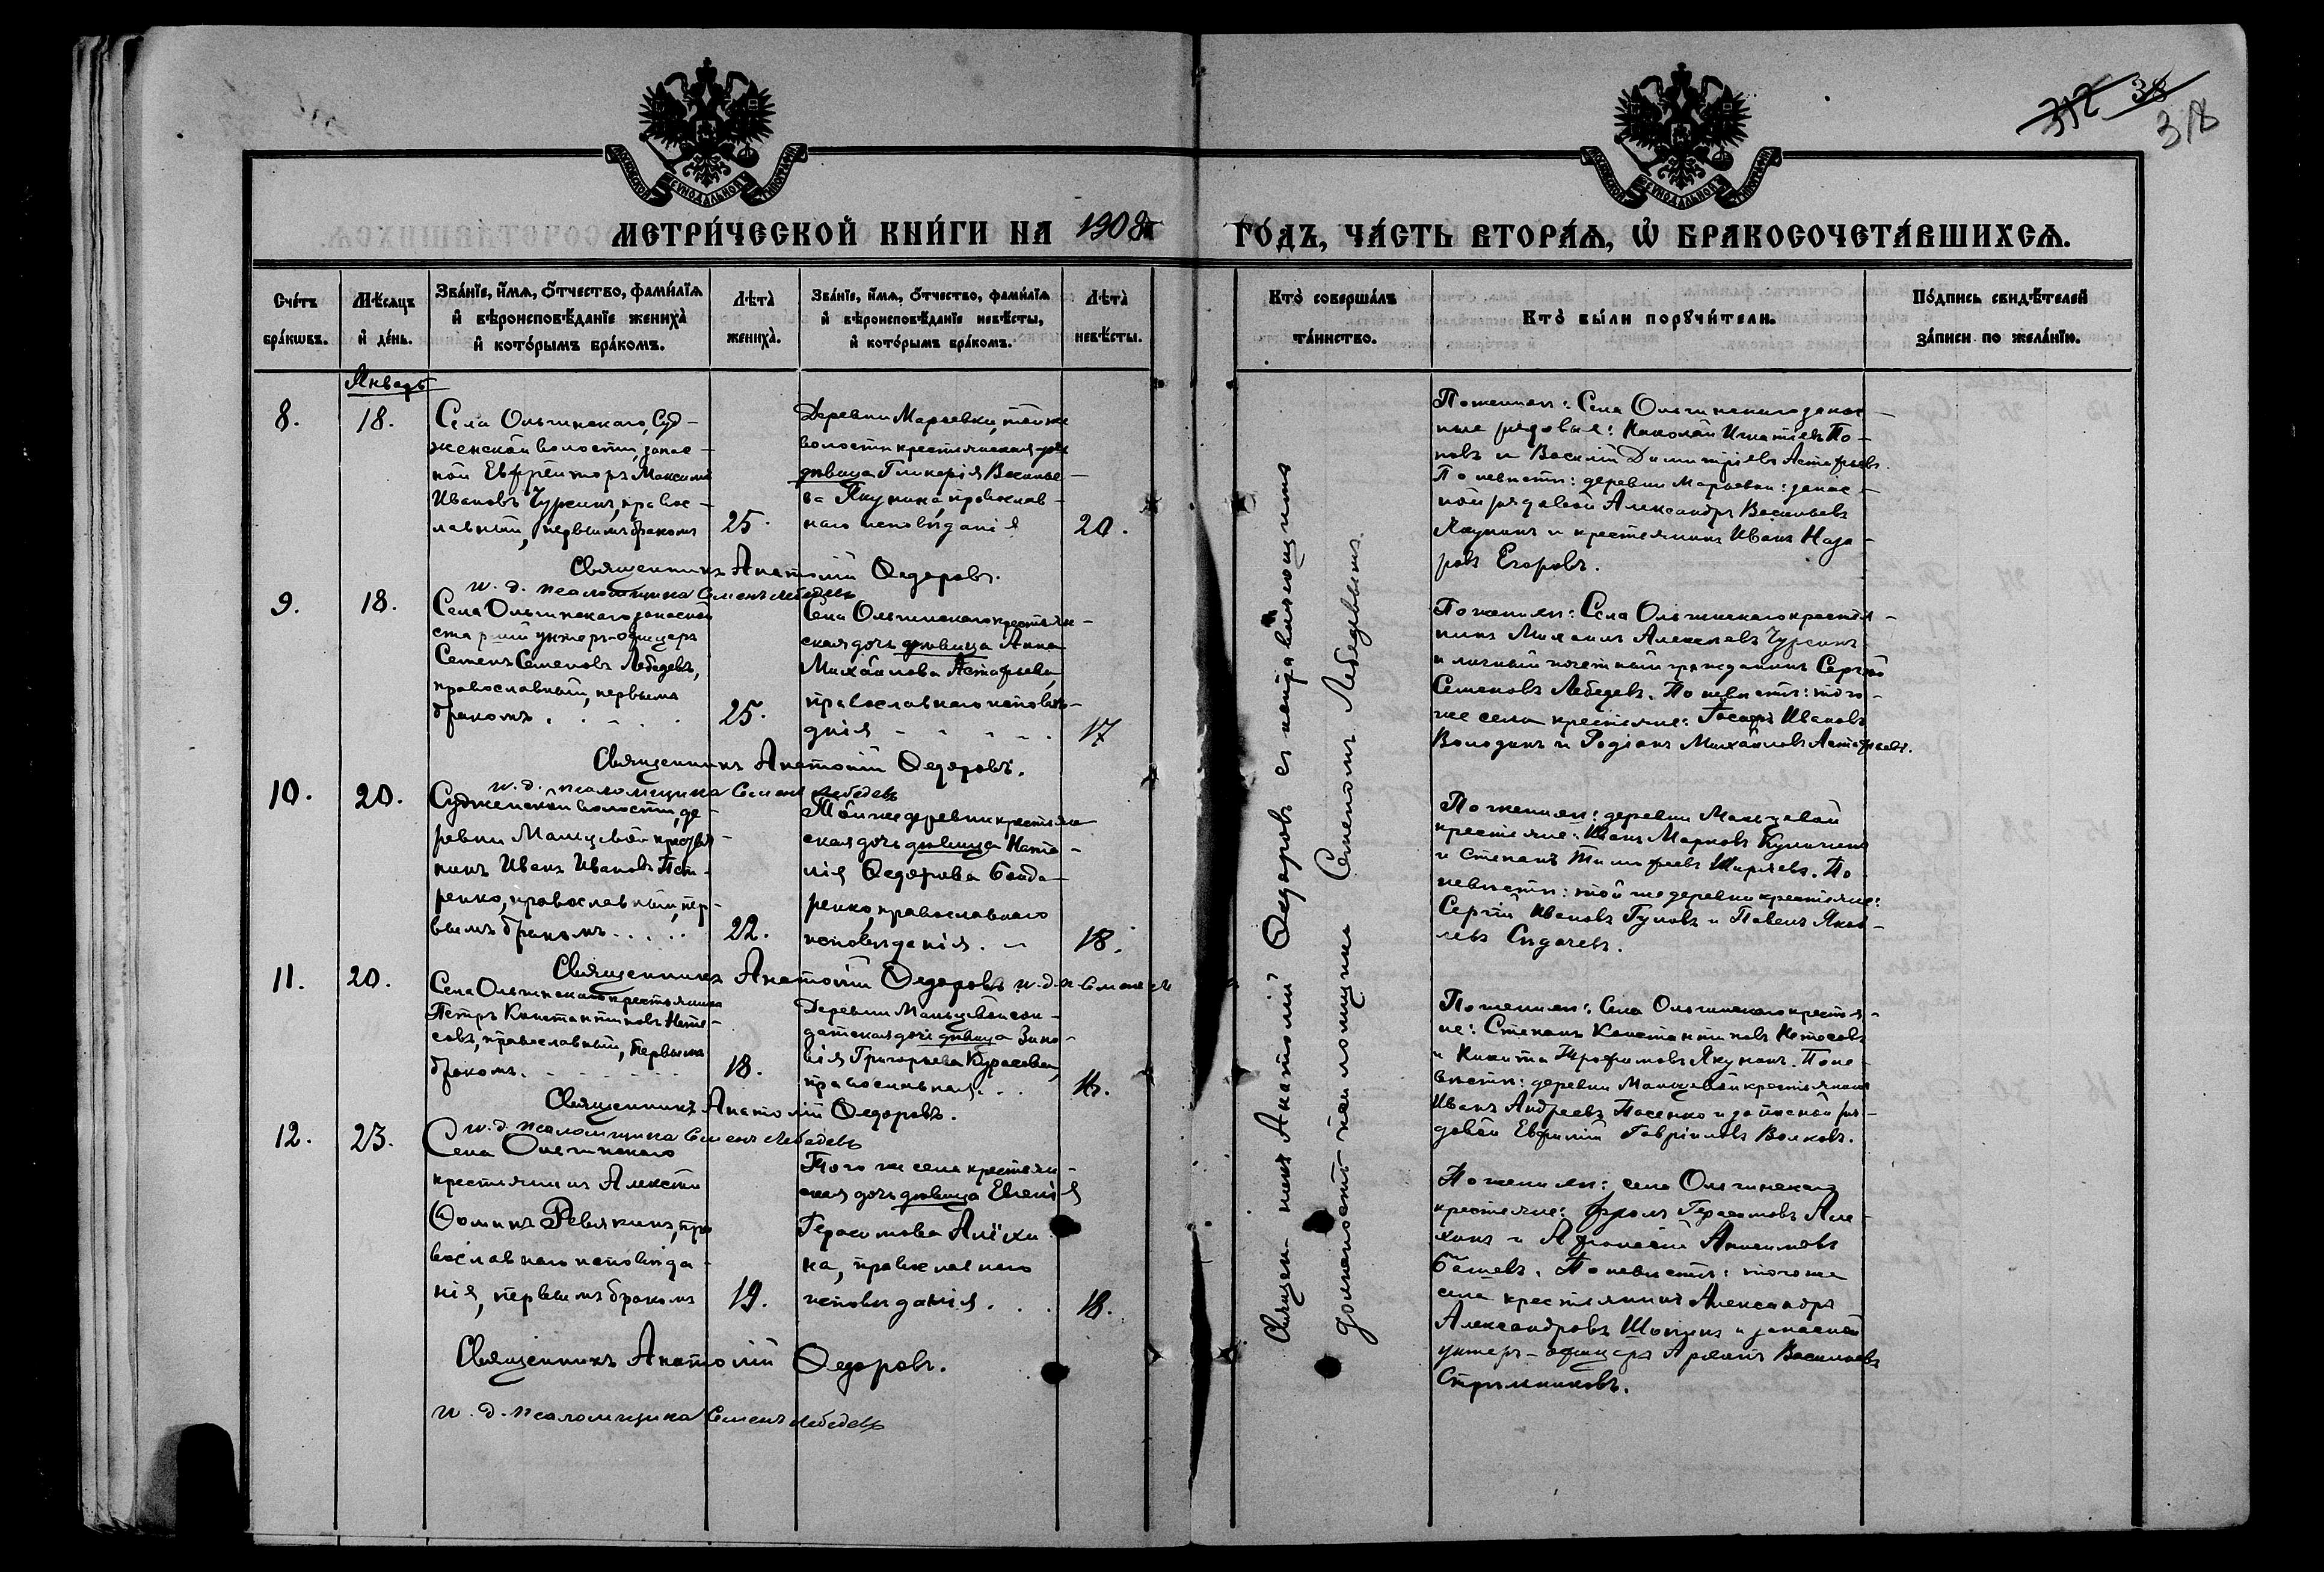 312 38
318
МЕТРИ́ЧЕСКОЙ КНИ́ГИ НА 1908й ГО́ДЪ, ЧА́СТЬ ВТОРА́Я, Ѡ БРАКОСОЧЕТА́ВШИХСЯ.
Сче́тъ бра́кѡвъ.
Мѣ́сяцъ и҆ де́нь.
Зва́нїе, и҆́мя, ѻ҆́тчество, фами́лїя
и҆ вѣроисповѣ́данїе жениха̀
и҆ кото́рымъ бра́комъ.
Лѣта̀ жениха̀.
Зва́нїе, и҆́мя, ѻ҆́тчество, фами́лїя
и҆ вѣроисповѣ́данїе невѣ́сты,
и҆ кото́рымъ бра́комъ.
Лѣта̀ невѣ́сты.
Кто̀ соверша́лъ та́инство.
Кто̀ бы́ли порꙋчи́тели.
По́дпись свидѣ́телей за́писи по жела́нїю.
Январь
8.
18.
Села Ольгинскаго, Суд-
женской волости, запас-
ной Ефрейторъ Максимъ
Ивановъ Чурсинъ, правос-
лавный, первымъ бракомъ
25.
Деревни Марьевки, той же
волости крестьянская
дѣвица Гликерія Василье-
ва Якунина, православ-
наго исповѣданія
20.
Поженихѣ: Села Ольгинскаго запас-
ные рядовые: Николай Игнатьевъ По-
повъ и Василій Димитріевъ Астафьевъ.
По невѣстѣ: деревни Марьевки: запас-
ной рядовой Александръ Васильевъ
Якунинъ и крестьянинъ Иванъ Наза-
ровъ Егоровъ.
Священникъ Анатолій Ѳедоровъ.
и. д. псаломщика Семенъ Лебедевъ
9.
18.
Села Ольгинскаго запасной
старшій унтеръ-офицеръ
Семенъ Семеновъ Лебедевъ,
православный, первымъ
бракомъ
25.
Села Ольгинскаго крестьян-
ская дочь дѣвица Анна
Михайлова Астафьева,
православнаго исповѣ-
данія
17
Поженихѣ: Села Ольгинскаго крестья-
нинъ Михаилъ Алексѣевъ Чурсинъ
и личный почетный гражданинъ Сергѣй
Семеновъ Лебедевъ. По невѣстѣ: того-
же села крестьяне: Іосифъ Ивановъ
Володинъ и Родіонъ Михайловъ Астафьевъ.
Священникъ Анатолій Ѳедоровъ.
и. д. псаломщика Семенъ Лебедевъ
10.
20.
Судженской волости, де-
ревни Мальцевой крестья-
нинъ Иванъ Ивановъ Пет-
ренко, православный, пер-
вымъ бракомъ
22.
Той же деревни крестьян-
ская дочь дѣвица Ната-
лія Ѳедорова Бонда-
ренко, православнаго
исповѣданія.
18.
По женихѣ: деревни Мальцевой
крестьяне: Иванъ Марковъ
и Степанъ Тимофеевъ Ширяевъ. По
невѣстѣ: той же деревни крестьяне:
Сергѣй Ивановъ Гуловъ и Павелъ Яков-
левъ Сидачевъ.
Священникъ Анатолій Ѳедоровъ и. д.
11.
20.
Села Ольгинскаго крестьянинъ
Петръ Константиновъ Нете-
совъ, православный, первымъ
бракомъ.
18.
Деревни Мальцевой сол-
датская дочь дѣвица Зино-
вія Григорьева Бурасова,
православная.
16.
Поженихѣ: Села Ольгинскаго крестья-
не: Степанъ Константиновъ Нетесовъ
и Никита Трофимовъ Якунинъ. По не-
вѣстѣ: деревни Мальцевой крестьянинъ
Иванъ Андреевъ Пасенко и запасной ря-
довой Евфимій Гавріиловъ Волковъ.
Священникъ Анатолій Ѳедоровъ.
и. д. псаломщика Семенъ Лебедевъ
12.
23.
Села Ольгинскаго
крестьянинъ Алексѣй
Ѳоминъ Ревякинъ, пра-
вославнаго исповѣда-
нія, первымъ бракомъ
19.
Того же села крестьян-
ская дочь дѣвица Евгенія
Герасимова Алёхи-
на, православнаго
исповѣданія.
18.
По женихѣ: села Ольгинскаго
крестьяне: Фролъ Герасимовъ Але-
хинъ и Афанасій Анисимовъ
По невѣстѣ: того же
села крестьянинъ Александръ
Александровъ и запасной
унтеръ-офицеръ Василь­евъ
Стрѣльниковъ.
Священникъ Анатолій Ѳедоровъ.
и. д. псаломщика Семенъ Лебедевъ
Священникъ Анатолій Ѳедоровъ съ исправляющимъ
должность псаломщика Семеномъ Лебедевымъ.